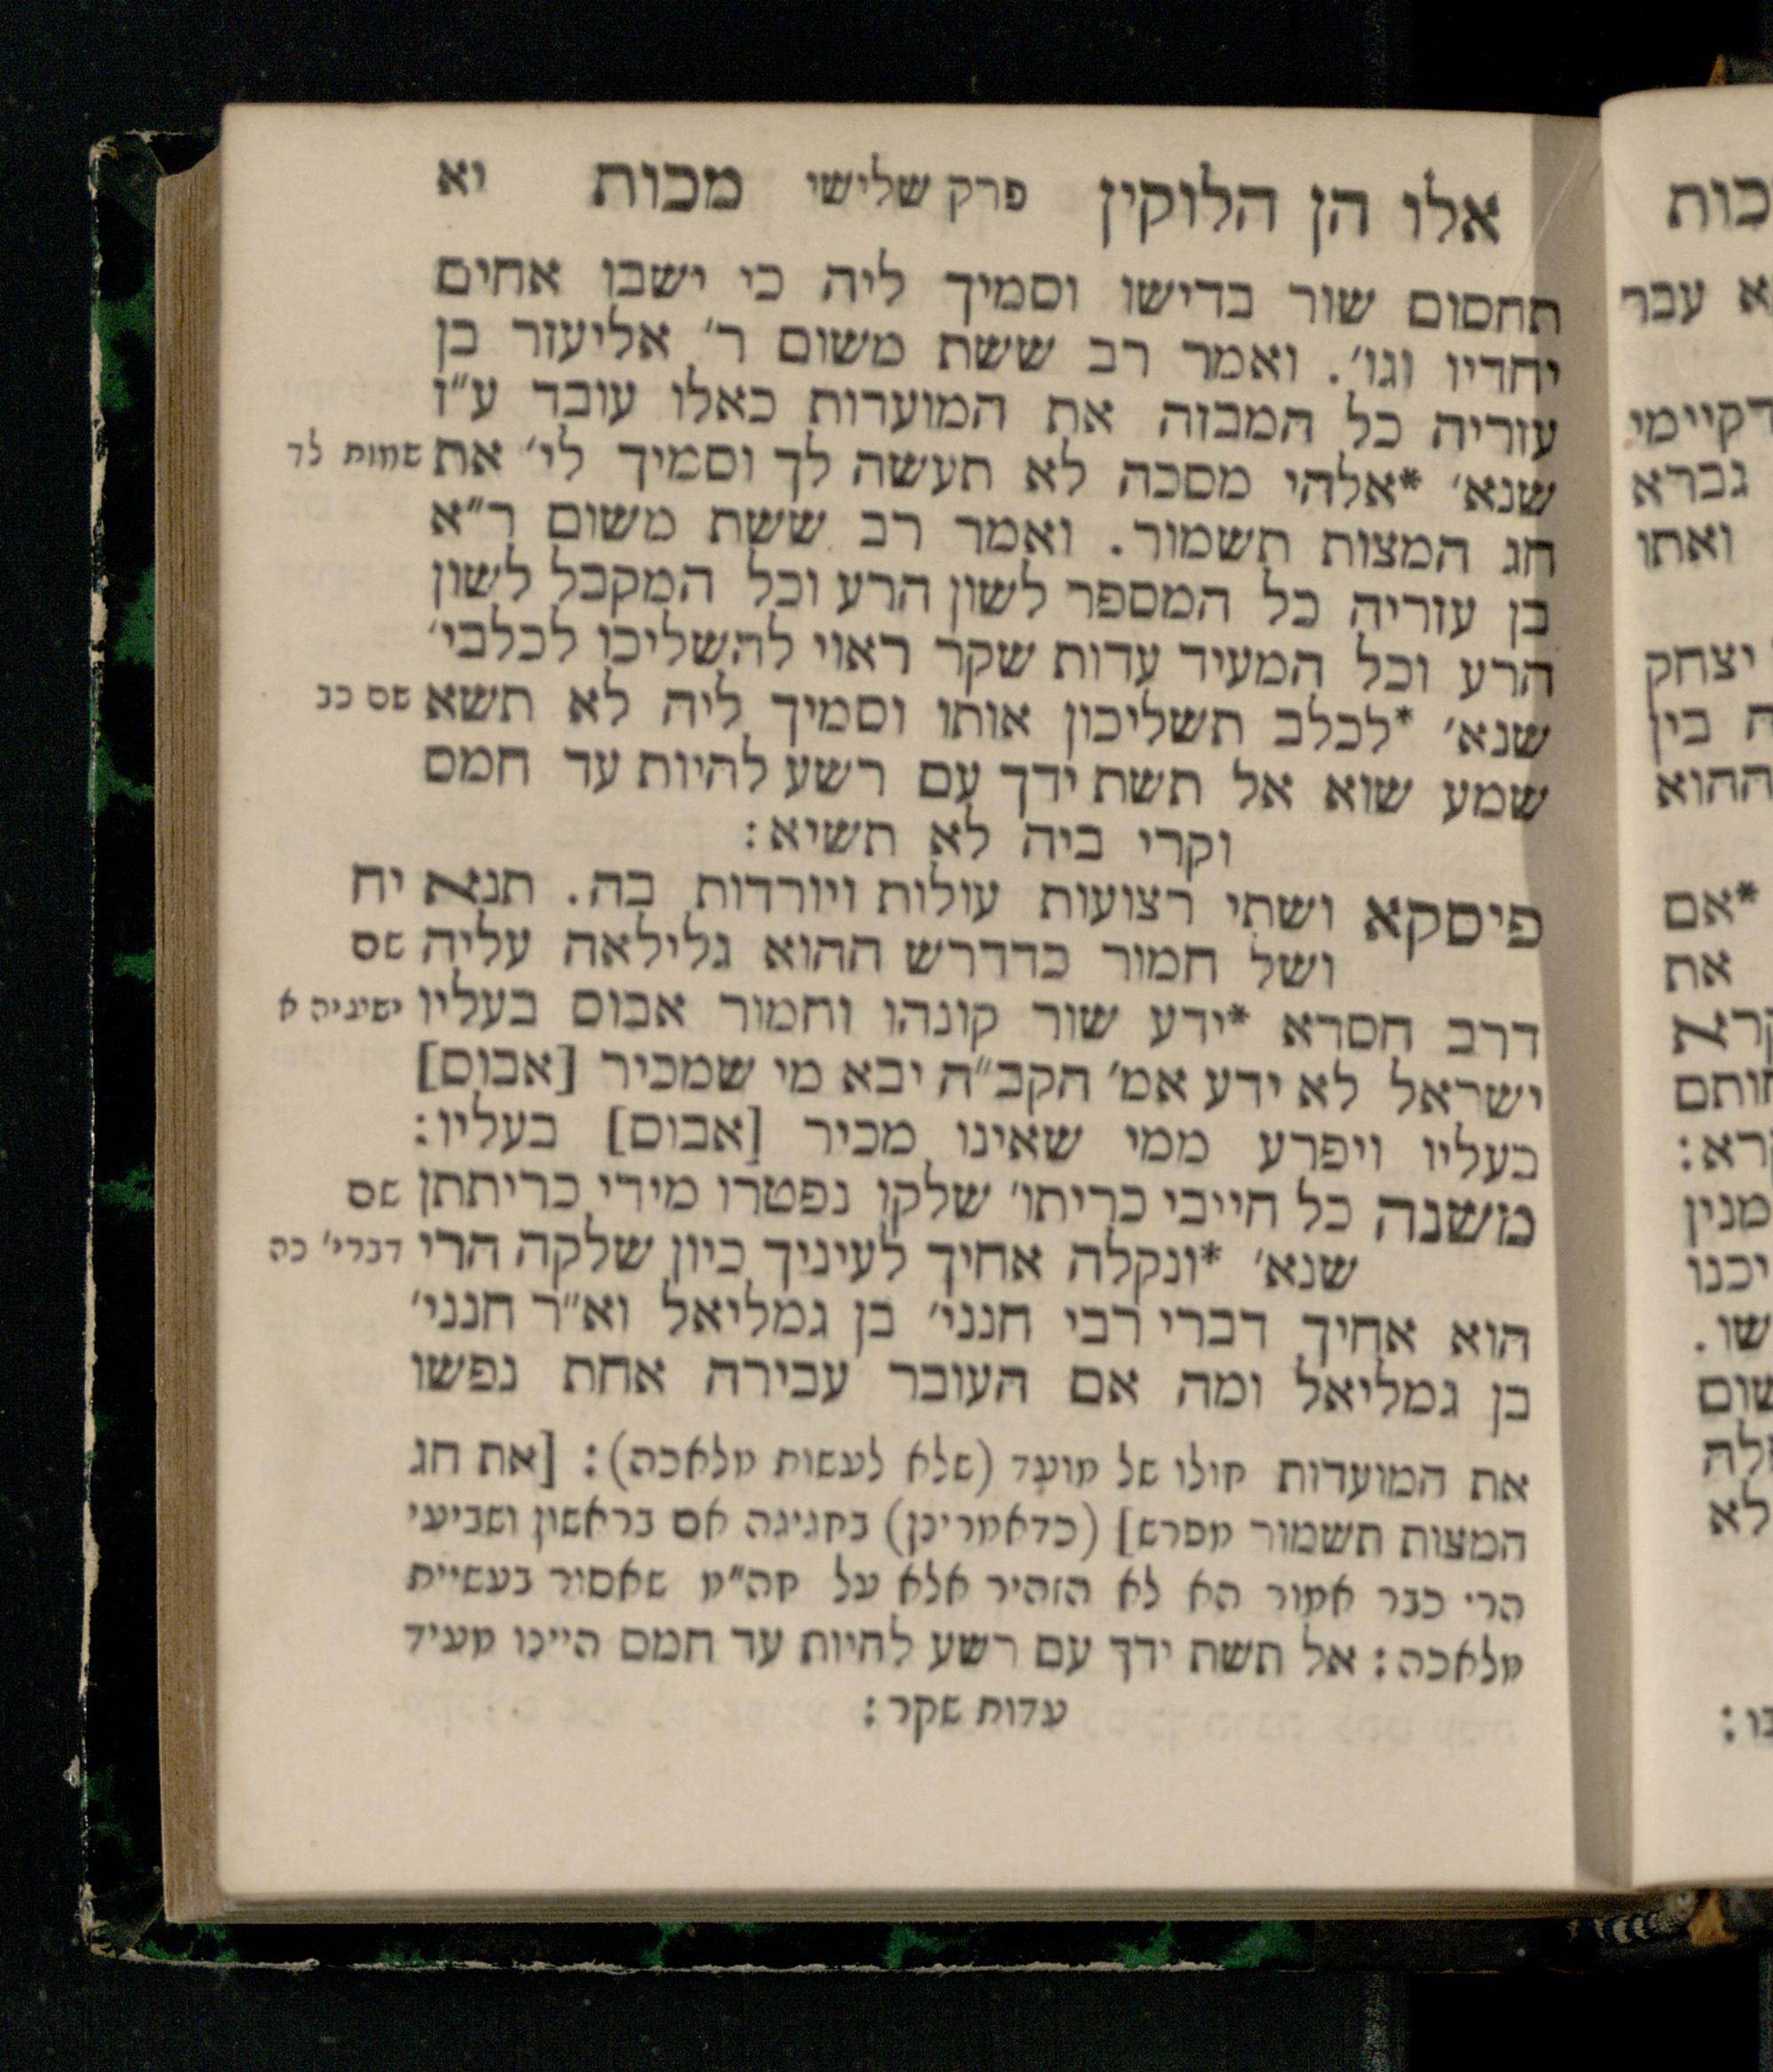 אלו הן הלוקין פרק שלישי מכות יא
תחסום שור בדישו וסמיך ליה כי ישבו אחים
יחדיו וגו׳. ואמר רב ששת משום ר׳ אליעזר בן
עזריה כל המבזה את המועדות כאלו עובד ע״ז
שנא׳ *אלהי מסכה לא תעשה לך וסמיך לי׳ את שמות לד
חג המצות תשמור. ואמר רב ששת משום ר״א
בן עזריה כל המספר לשון הרע וכל המקבל לשון
הרע וכל המעיד עדות שקר ראוי להשליכו לכלבי׳
שנא׳ *לכלב תשליכון אותו וסמיך ליה לא תשא שם כג
שמע שוא אל תשת ידך עם רשע להיות עד חמס
וקרי ביה לא תשיא:
פיסקא ושתי רצועות עולות ויורדות בה. תנא יח
ושל חמור כדדרש ההוא גלילאה עליה שם
דרב חסדא *ידע שור קונהו וחמור אבוס בעליו ישעיה א
ישראל לא ידע אמ׳ הקב״ה יבא מי שמכיר [אבוס]
בעליו ויפרע ממי שאינו מכיר [אבוס] בעליו:
משנה כל חייבי כריתו׳ שלקו נפטרו מידי כריתתן שם
שנא׳ *ונקלה אחיך לעיניך כיון שלקה הרי דברי׳ כה
הוא אחיך דברי רבי חנני׳ בן גמליאל וא״ר חנני׳
בן גמליאל ומה אם העובר עבירה אחת נפשו
את המועדות חולו של מועד (שלא לעשות מלאכה): [את חג
המצות תשמור מפרש] (כדאמרינן) בחגיגה אם בראשון ושביעי
הרי כבר אמור הא לא הזהיר אלא על חה״מ שאסור בעשיית
מלאכה: אל תשת ידך עם רשע להיות עד חמס היינו מעיד
עדות שקר:
כות
א עבר
דקיימי
גברא
ואתו
יצחק
ה בין
ההוא
*אם
את
קרא
חותם
קרא:
מנין
יכנו
שו.
שום
לא